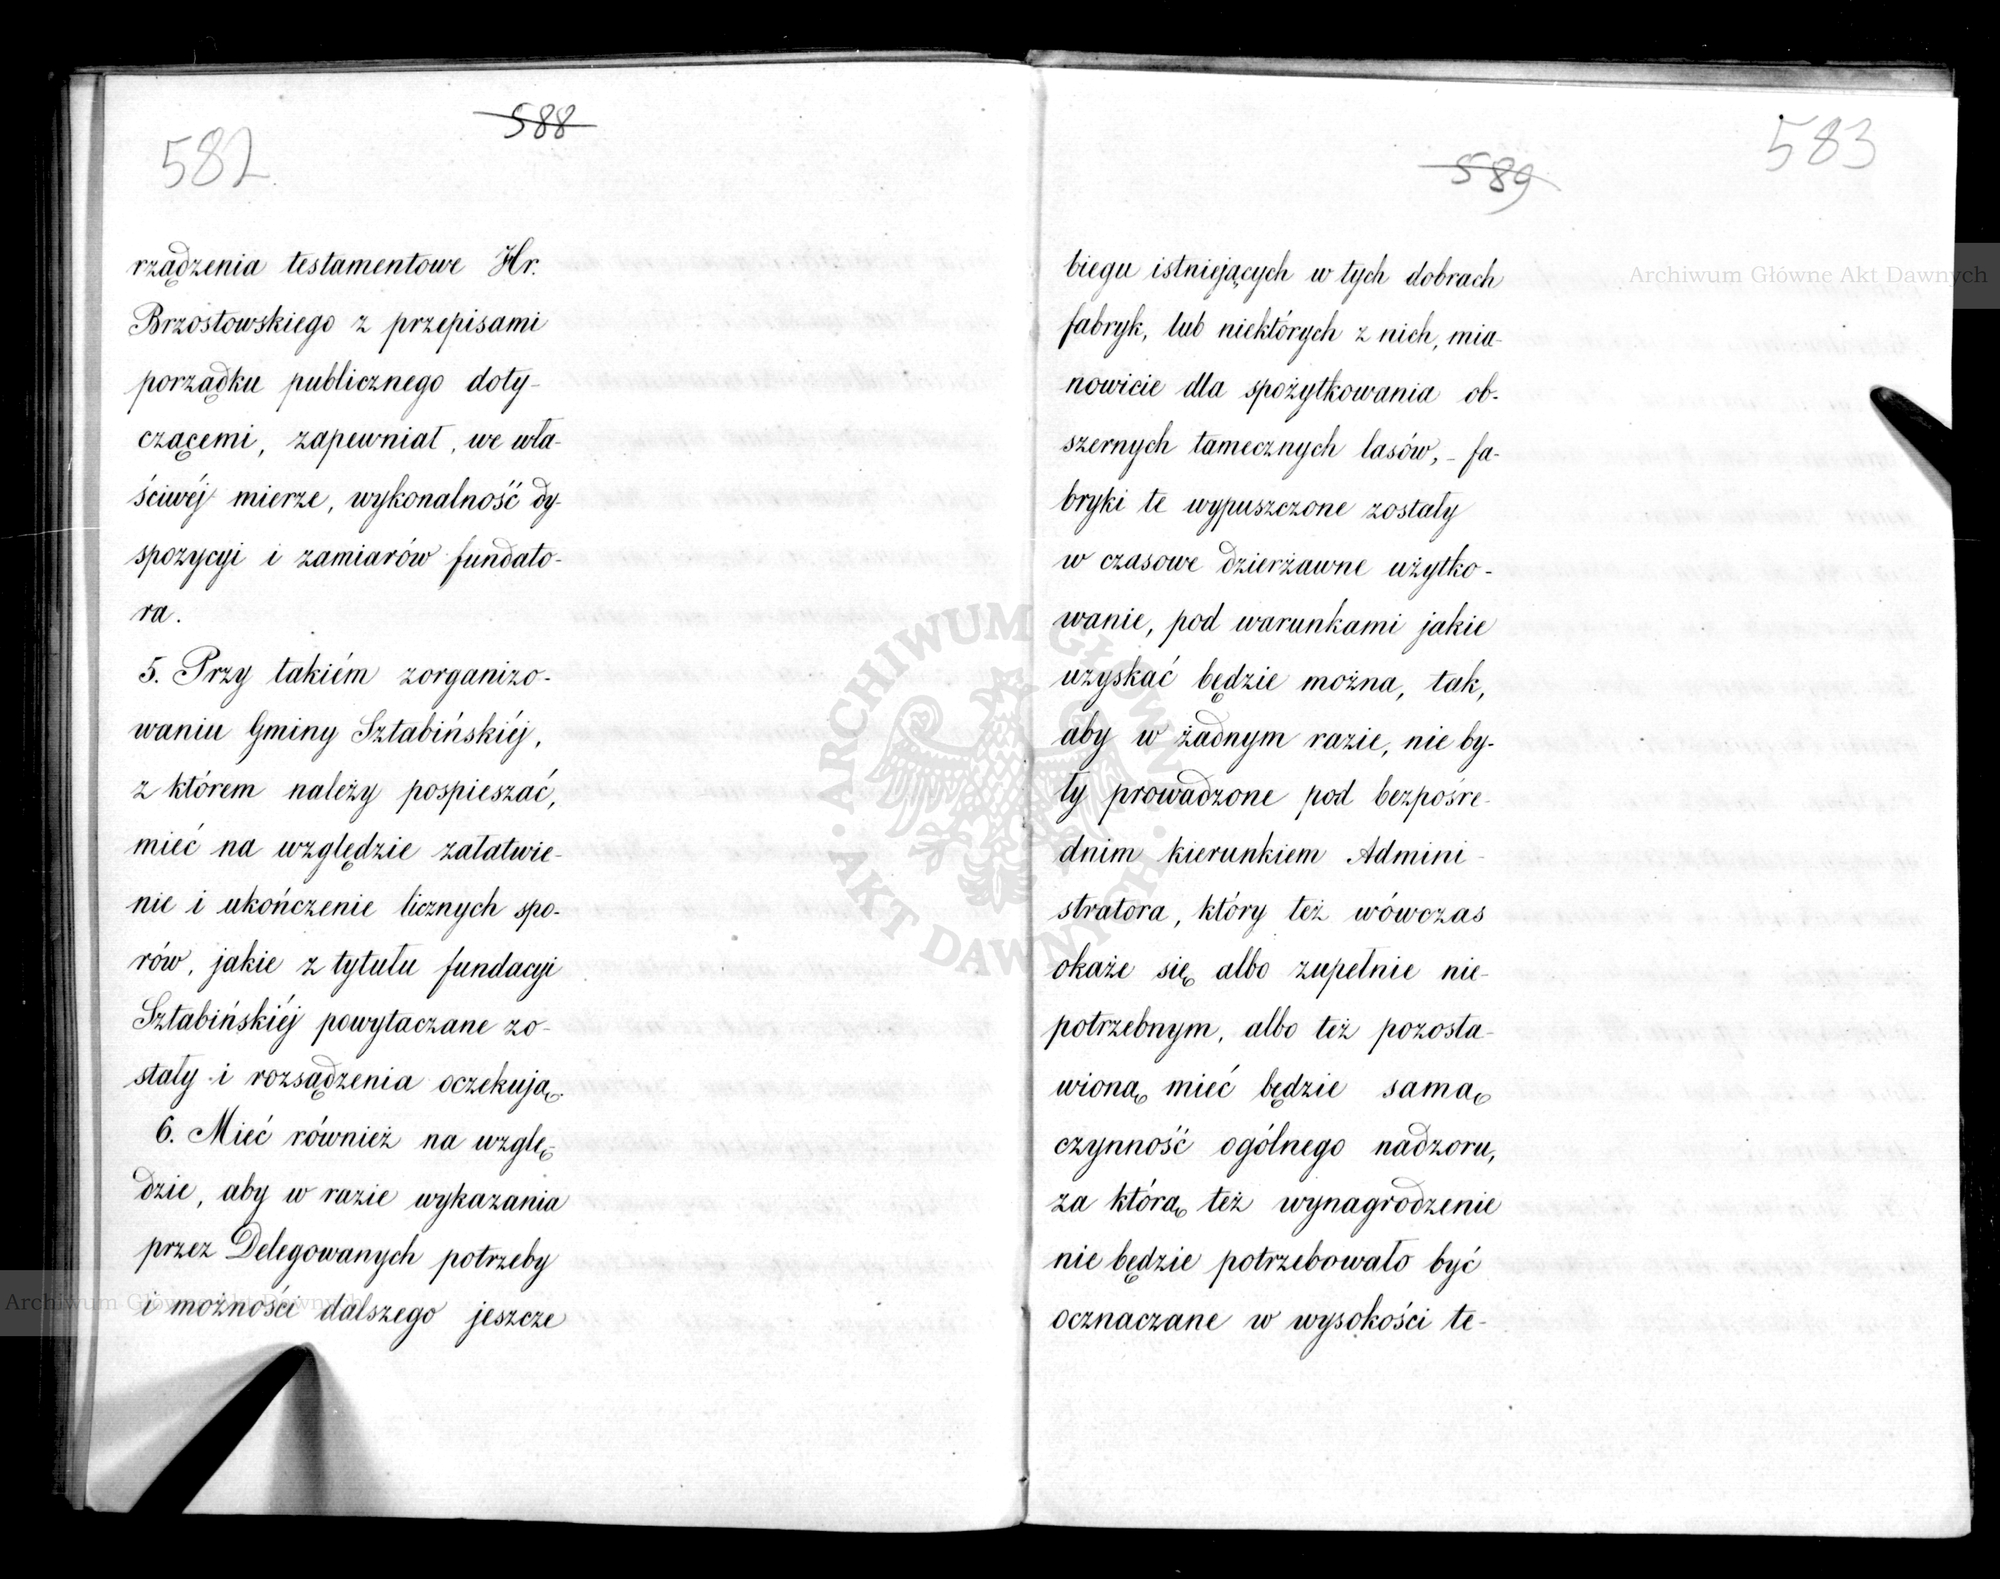 582
588
rządzenia testamentowe Hr.
Brzostowskiego z przepisami
porządku publicznego doty-
czącemi, zapewniał, we wła-
ściwéj mierze, wykonalność dy-
spozycyi i zamiarów fundato-
ra.
5. Przy takiém zorganizo-
waniu Gminy Sztabińskiéj,
z którem należy pospieszać,
mieć na względzie załatwie-
nie i ukończenie licznych spo-
rów, jakie z tytułu fundacyi
Sztabińskiéj powytaczane zo-
stały i rozsądzenia oczekują.
6. Mieć również na wzglę-
dzie, aby w razie wykazania
przez Delegowanych potrzeby
i możności dalszego jeszcze
583
589
biegu istniejących w tych dobrach
fabryk, lub niektórych z nich, mia-
nowicie dla spożytkowania ob-
szernych tamecznych lasów, - fa-
bryki te wypuszczone zostały
w czasowe dzierżawne użytko-
wanie, pod warunkami jakie
uzyskać będzie można, tak,
aby w żadnym razie, nie by-
ły prowadzone pod bezpośre-
dnim kierunkiem Admini-
stratora, który też wówczas
okaże się albo zupełnie nie-
potrzebnym, albo też pozosta-
wioną mieć będzie samą
czynność ogólnego nadzoru,
za którą też wynagrodzenie
nie będzie potrzebowało być
oznaczane w wysokości te-
Archiwum Główne Akt Dawnych
Archiwum Główne Akt Dawnych
ARCHIWUM GŁÓWNE
AKT DAWNYCH